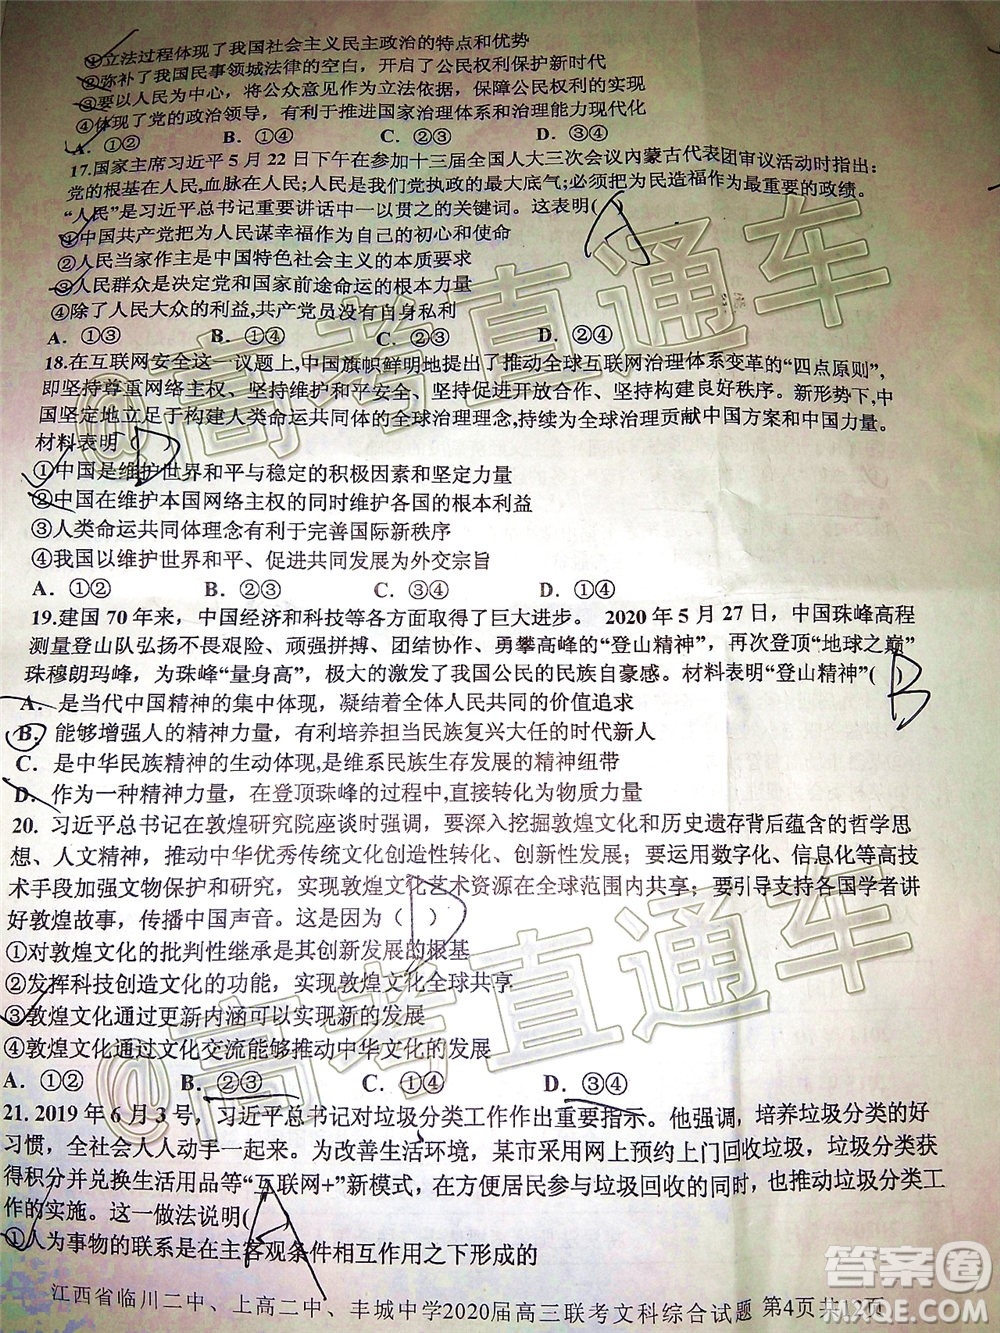 ①立法过程体现了我国社会主义民主政治的特点和优势
②弥补了我国民事领城法律的空白，开启了公民权利保护新时代
③要以人民为中心，将公众意见作为立法依据，保障公民权利的实现
④体现了党的政治领导，有利于国家治理体系和治理能力现代化
A．①② B．①④ C．②③ D．③④
17.国家主席习近平5月22日下午在参加十三届全国人大三次会议内蒙古代表团审议活动时指出：
党的根基在人民,血脉在人民;人民是我们党执政的最大底气;必须把为民造福作为最重要的政绩。
“人民”是习近平总书记重要讲话中一以贯之的关键词。这表明( )
A
①中国共产党把为人民谋幸福作为自己的初心和使命
②人民当家作主是中国特色社会主义的本质要求
③人民群众是决定党和国家前途命运的根本力量
④除了人民大众的利益,共产党员没有自身私利
A．①③ B．①④ C．②③ D．②④
18.在互联网安全这一议题上,中国旗帜鲜明地提出了推动全球互联网治理体系变革的“四点原则”,
即坚持尊重网络主权、坚持维护和平安全、坚持促进开放合作、坚持构建良好秩序。新形势下,中
国坚定地立足于构建人类命运共同体的全球治理理念,持续为全球治理贡献中国方案和中国力量。
材料表明（ ）
①中国是维护世界和平与稳定的积极因素和坚定力量
②中国在维护本国网络主权的同时维护各国的根本利益
③人类命运共同体理念有利于完善国际新秩序
④我国以维护世界和平、促进共同发展为外交宗旨
A．①② B．①③ C．②③ D．①④
19.建国70年来，中国经济和科技等各方面取得了巨大进步。2020年5月27日，中国珠峰高程
测量登山队弘扬不畏艰险、顽强拼搏、团结协作、勇攀高峰的“登山精神”，再次登顶“地球之巅”
珠穆朗玛峰，为珠峰“量身高”，极大的激发了我国公民的民族自豪感。材料表明“登山精神”( )
B
A．是当代中国精神的集中体现，凝结着全体人民共同的价值追求
B．能够增强人的精神力量，有利培养担当民族复兴大任的时代新人
C．是中华民族精神的生动体现,是维系民族生存发展的精神纽带
D．作为一种精神力量，在登顶珠峰的过程中,直接转化为物质力量
20. 习近平总书记在敦煌研究院座谈时强调，要深入挖掘敦煌文化和历史遗存背后蕴含的哲学思
想、人文精神，推动中华优秀传统文化创造性转化、创新性发展；要运用数字化、信息化等高技
术手段加强文物保护和研究，实现敦煌文化艺术资源在全球范围内共享；要引导支持各国学者讲
好敦煌故事，传播中国声音。这是因为（ ）
①对敦煌文化的批判性继承是其创新发展的根基
②发挥科技创造文化的功能，实现敦煌文化全球共享
③敦煌文化通过更新内涵可以实现新的发展
④敦煌文化通过文化交流能够推动中华文化的发展
A．①② B．②③ C．①④ D．③④
21. 2019年6月3号，习近平总书记对垃圾分类工作作出重要指示。他强调，培养垃圾分类的好
习惯，全社会人人动手一起来。为改善生活环境，某市采用网上预约上门回收垃圾，垃圾分类获
得积分并兑换生活用品等“互联网+”新模式，在方便居民参与垃圾回收的同时，也推动垃圾分类工
作的实施。这一做法说明( )
A
①人为事物的联系是在主客观条件相互作用之下形成的
江西省临川二中、上高二中、丰城中学2020届高三联考文科综合试题 第4页共12页
@高考直通车
@高考直通车
答案圈
MXQE.COM